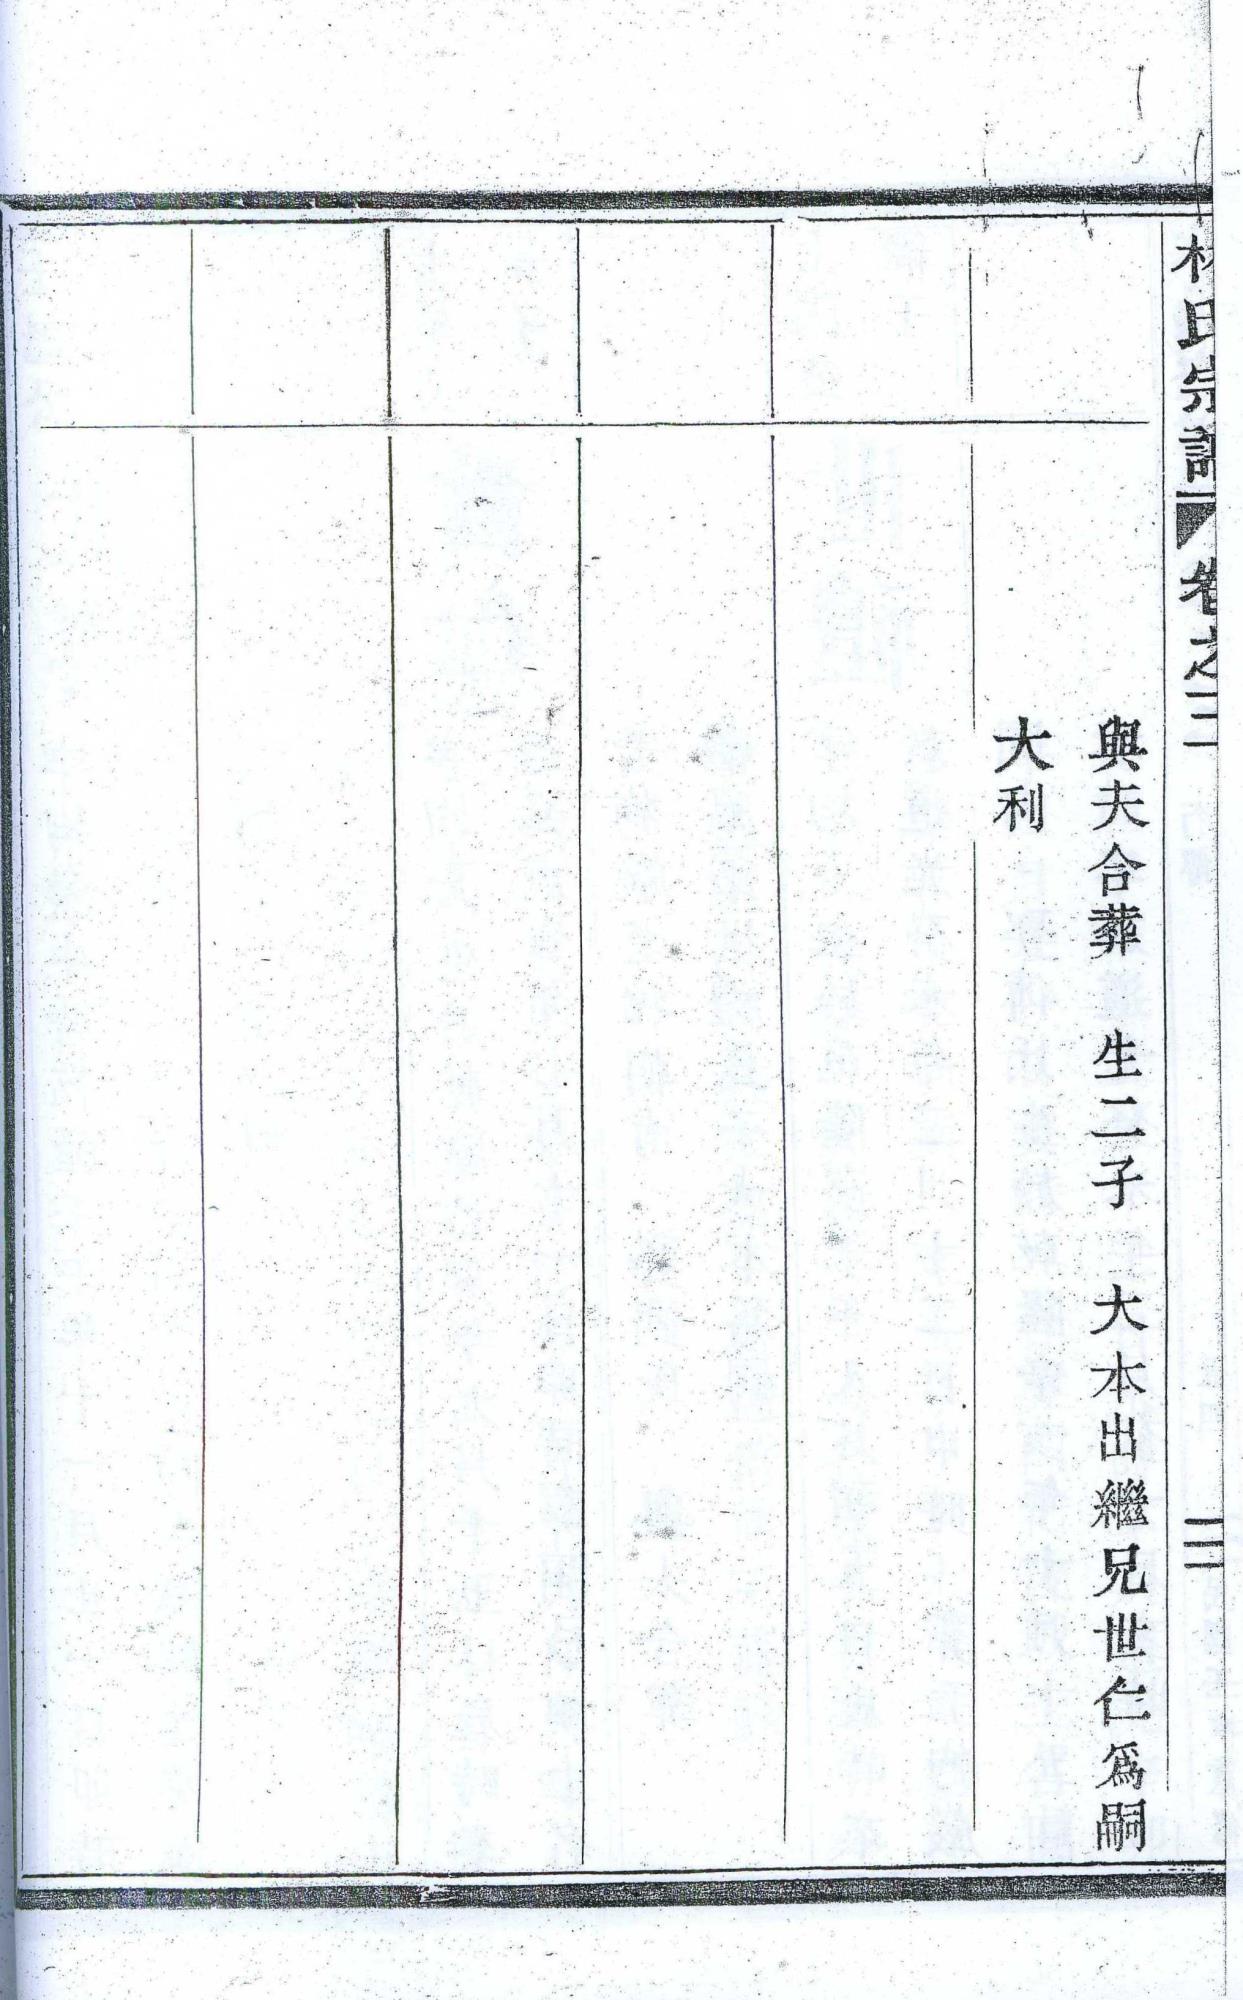 林氏宗譜 卷之二 三
與夫合葬 生二子 大本出繼兄世仁爲嗣
大利